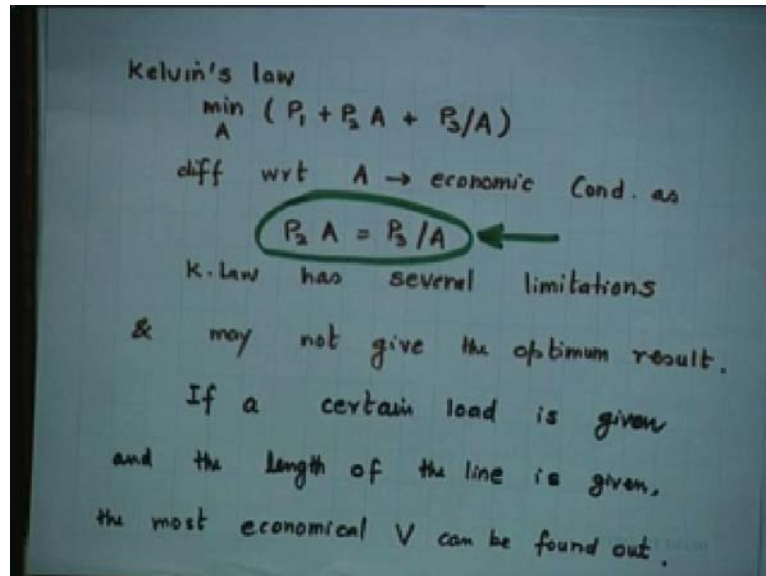 Kelvin's law
min ( P₁ + P₂ A + P₃/A )
A
diff wrt A → economic Cond. as
P₂ A = P₃ /A
K. Law has several limitations
& may not give the optimum result.
If a certain load is given
and the length of the line is given,
the most economical V can be found out.